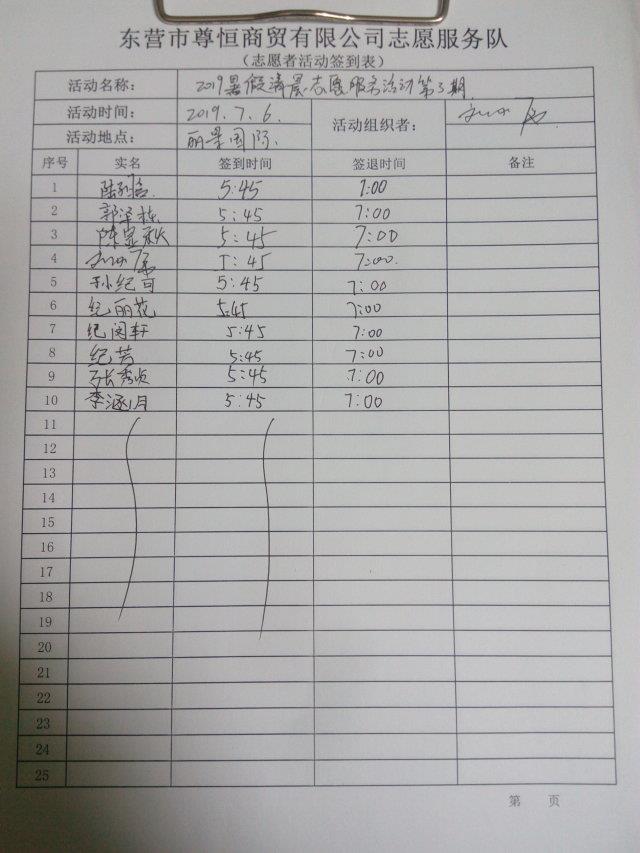 东营市尊恒商贸有限公司志愿服务队
（志愿者活动签到表）
活动名称： 2019暑假清晨志愿服务活动第3期
活动时间： 2019.7.6. 活动组织者：
活动地点： 丽景国际.
序号 实名 签到时间 签退时间 备注
1 5:45 7:00
2 郭泽栋 5:45 7:00
3 陈宝秋 5:45 7:00
4 5:45 7:00.
5 孙纪苛 5:45 7:00
6 纪丽花 5:45 7:00
7 纪闵轩 5:45 7:00
8 纪芳 5:45 7:00
9 张秀贞 5:45 7:00
10 李涵月 5:45 7:00
11
12
13
14
15
16
17
18
19
20
21
22
23
24
25
第 页